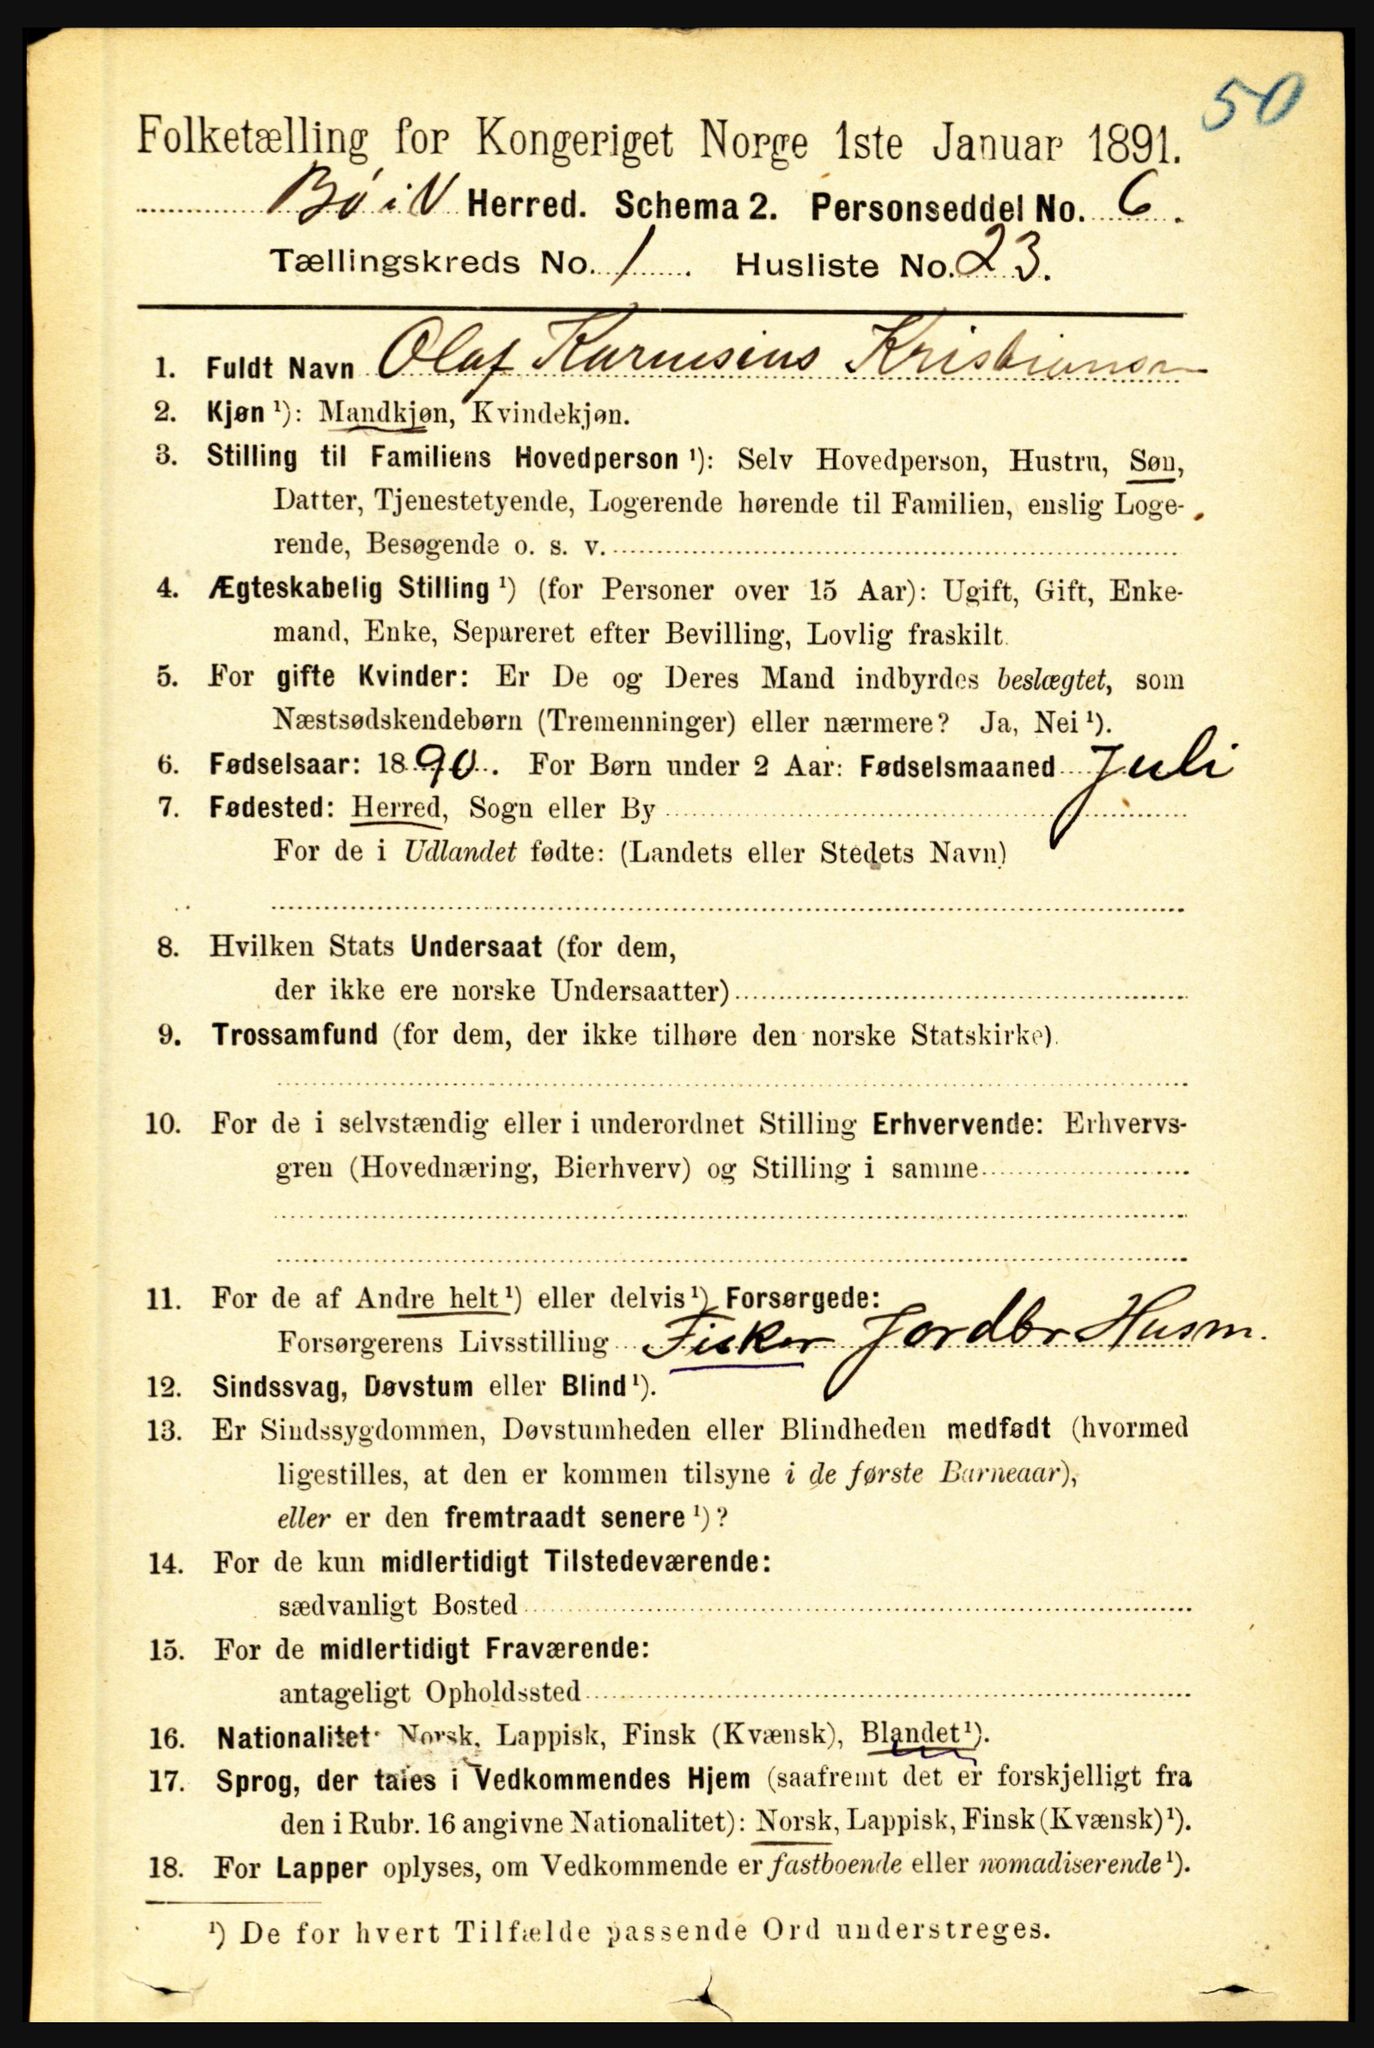 50
Folketælling for Kongeriget Norge 1ste Januar 1891.
Bø i V Herred. Schema 2. Personseddel No. 6.
Tællingskreds No. 1. Husliste No. 23.
1. Fuldt Navn Olaf Karnisius Kristiansen
2. Kjøn ¹): Mandkjøn, Kvindekjøn.
3. Stilling til Familiens Hovedperson ¹): Selv Hovedperson, Hustru, Søn,
Datter, Tjenestetyende, Logerende hørende til Familien, enslig Loge-
rende, Besøgende o. s. v.
4. Ægteskabelig Stilling ¹) (for Personer over 15 Aar): Ugift, Gift, Enke-
mand, Enke, Separeret efter Bevilling, Lovlig fraskilt.
5. For gifte Kvinder: Er De og Deres Mand indbyrdes beslægtet, som
Næstsødskendebørn (Tremenninger) eller nærmere? Ja, Nei ¹).
6. Fødselsaar: 1890. For Børn under 2 Aar: Fødselsmaaned Juli
7. Fødested: Herred, Sogn eller By
For de i Udlandet fødte: (Landets eller Stedets Navn)
8. Hvilken Stats Undersaat (for dem,
der ikke ere norske Undersaatter)
9. Trossamfund (for dem, der ikke tilhøre den norske Statskirke).
10. For de i selvstændig eller i underordnet Stilling Erhvervende: Erhvervs-
gren (Hovednæring, Bierhverv) og Stilling i samme
11. For de af Andre helt ¹) eller delvis ¹) Forsørgede:
Forsørgerens Livsstilling Fisker Jordbr Husm.
12. Sindssvag, Døvstum eller Blind ¹).
13. Er Sindssygdommen, Døvstumheden eller Blindheden medfødt (hvormed
ligestilles, at den er kommen tilsyne i de første Barneaar),
eller er den fremtraadt senere ¹)?
14. For de kun midlertidigt Tilstedeværende:
sædvanligt Bosted
15. For de midlertidigt Fraværende:
antageligt Opholdssted
16. Nationalitet: Norsk, Lappisk, Finsk (Kvænsk), Blandet ¹).
17. Sprog, der tales i Vedkommendes Hjem (saafremt det er forskjelligt fra
den i Rubr. 16 angivne Nationalitet): Norsk, Lappisk, Finsk (Kvænsk) ¹).
18. For Lapper oplyses, om Vedkommende er fastboende eller nomadiserende ¹).
¹) De for hvert Tilfælde passende Ord understreges.